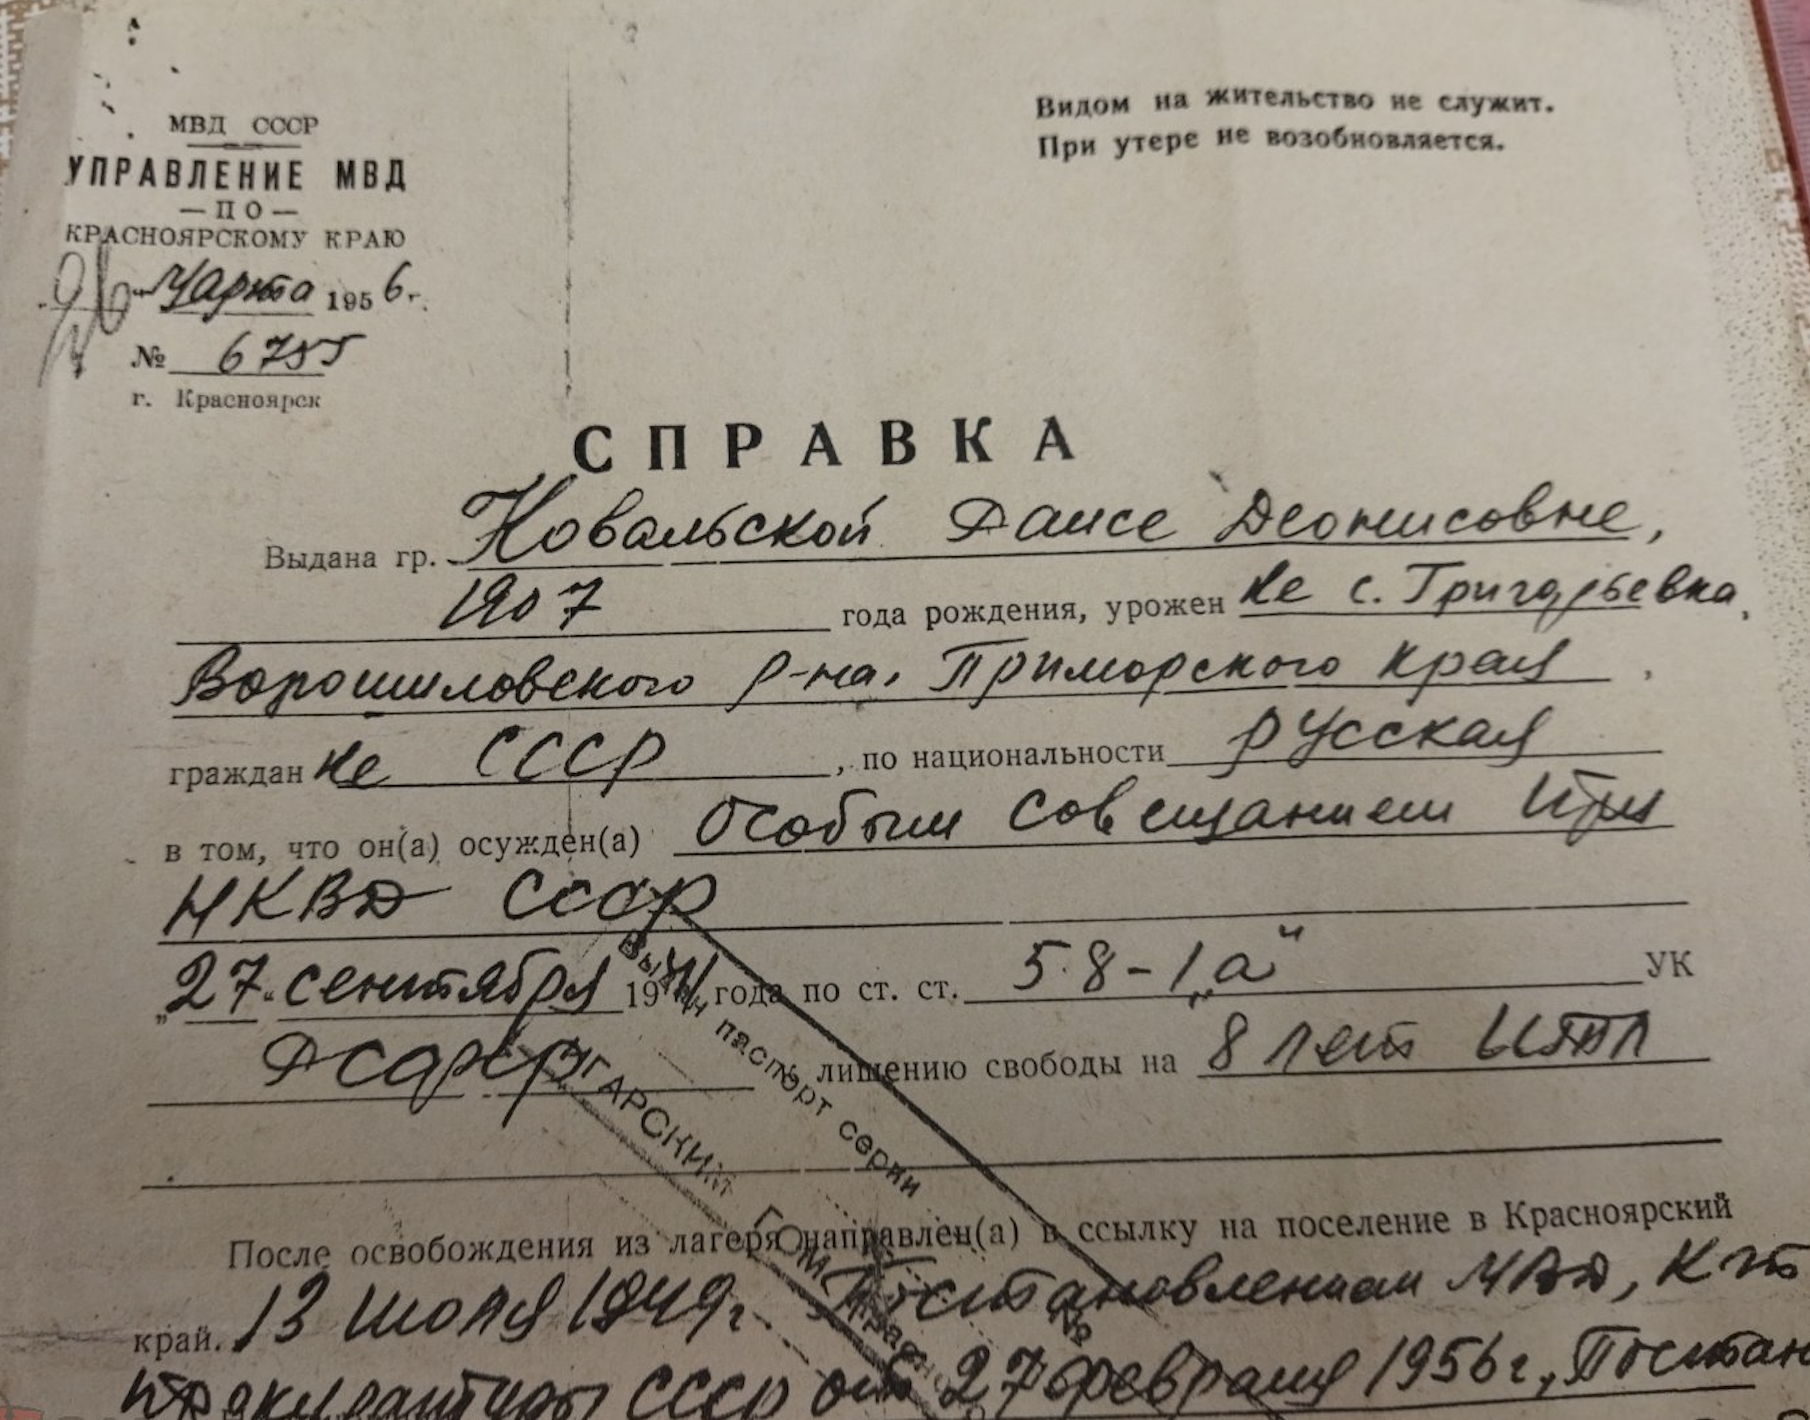 МВД СССР
УПРАВЛЕНИЕ МВД
— ПО —
КРАСНОЯРСКОМУ КРАЮ
марта 1956 г.
№ 6785
г. Красноярск
Видом на жительство не служит.
При утере не возобновляется.
СПРАВКА
Выдана гр. Ковальской Раисе Деонисовне,
1907 года рождения, уроженке с. Григорьевка,
Ворошиловского р-на, Приморского края.
гражданке СССР, по национальности русская
в том, что он(а) осужден(а) Особым Совещанием при
НКВД СССР
„27" сентября 1941 года по ст. ст. 58-1„а" УК
РСФСР к лишению свободы на 8 лет ИТЛ
После освобождения из лагеря направлен(а) в ссылку на поселение в Красноярский
край. 13 июля 1949 г. Постановлением МВД, КГБ
прокуратуры СССР от 27 февраля 1956 г., Постан
Выдан паспорт серии
№